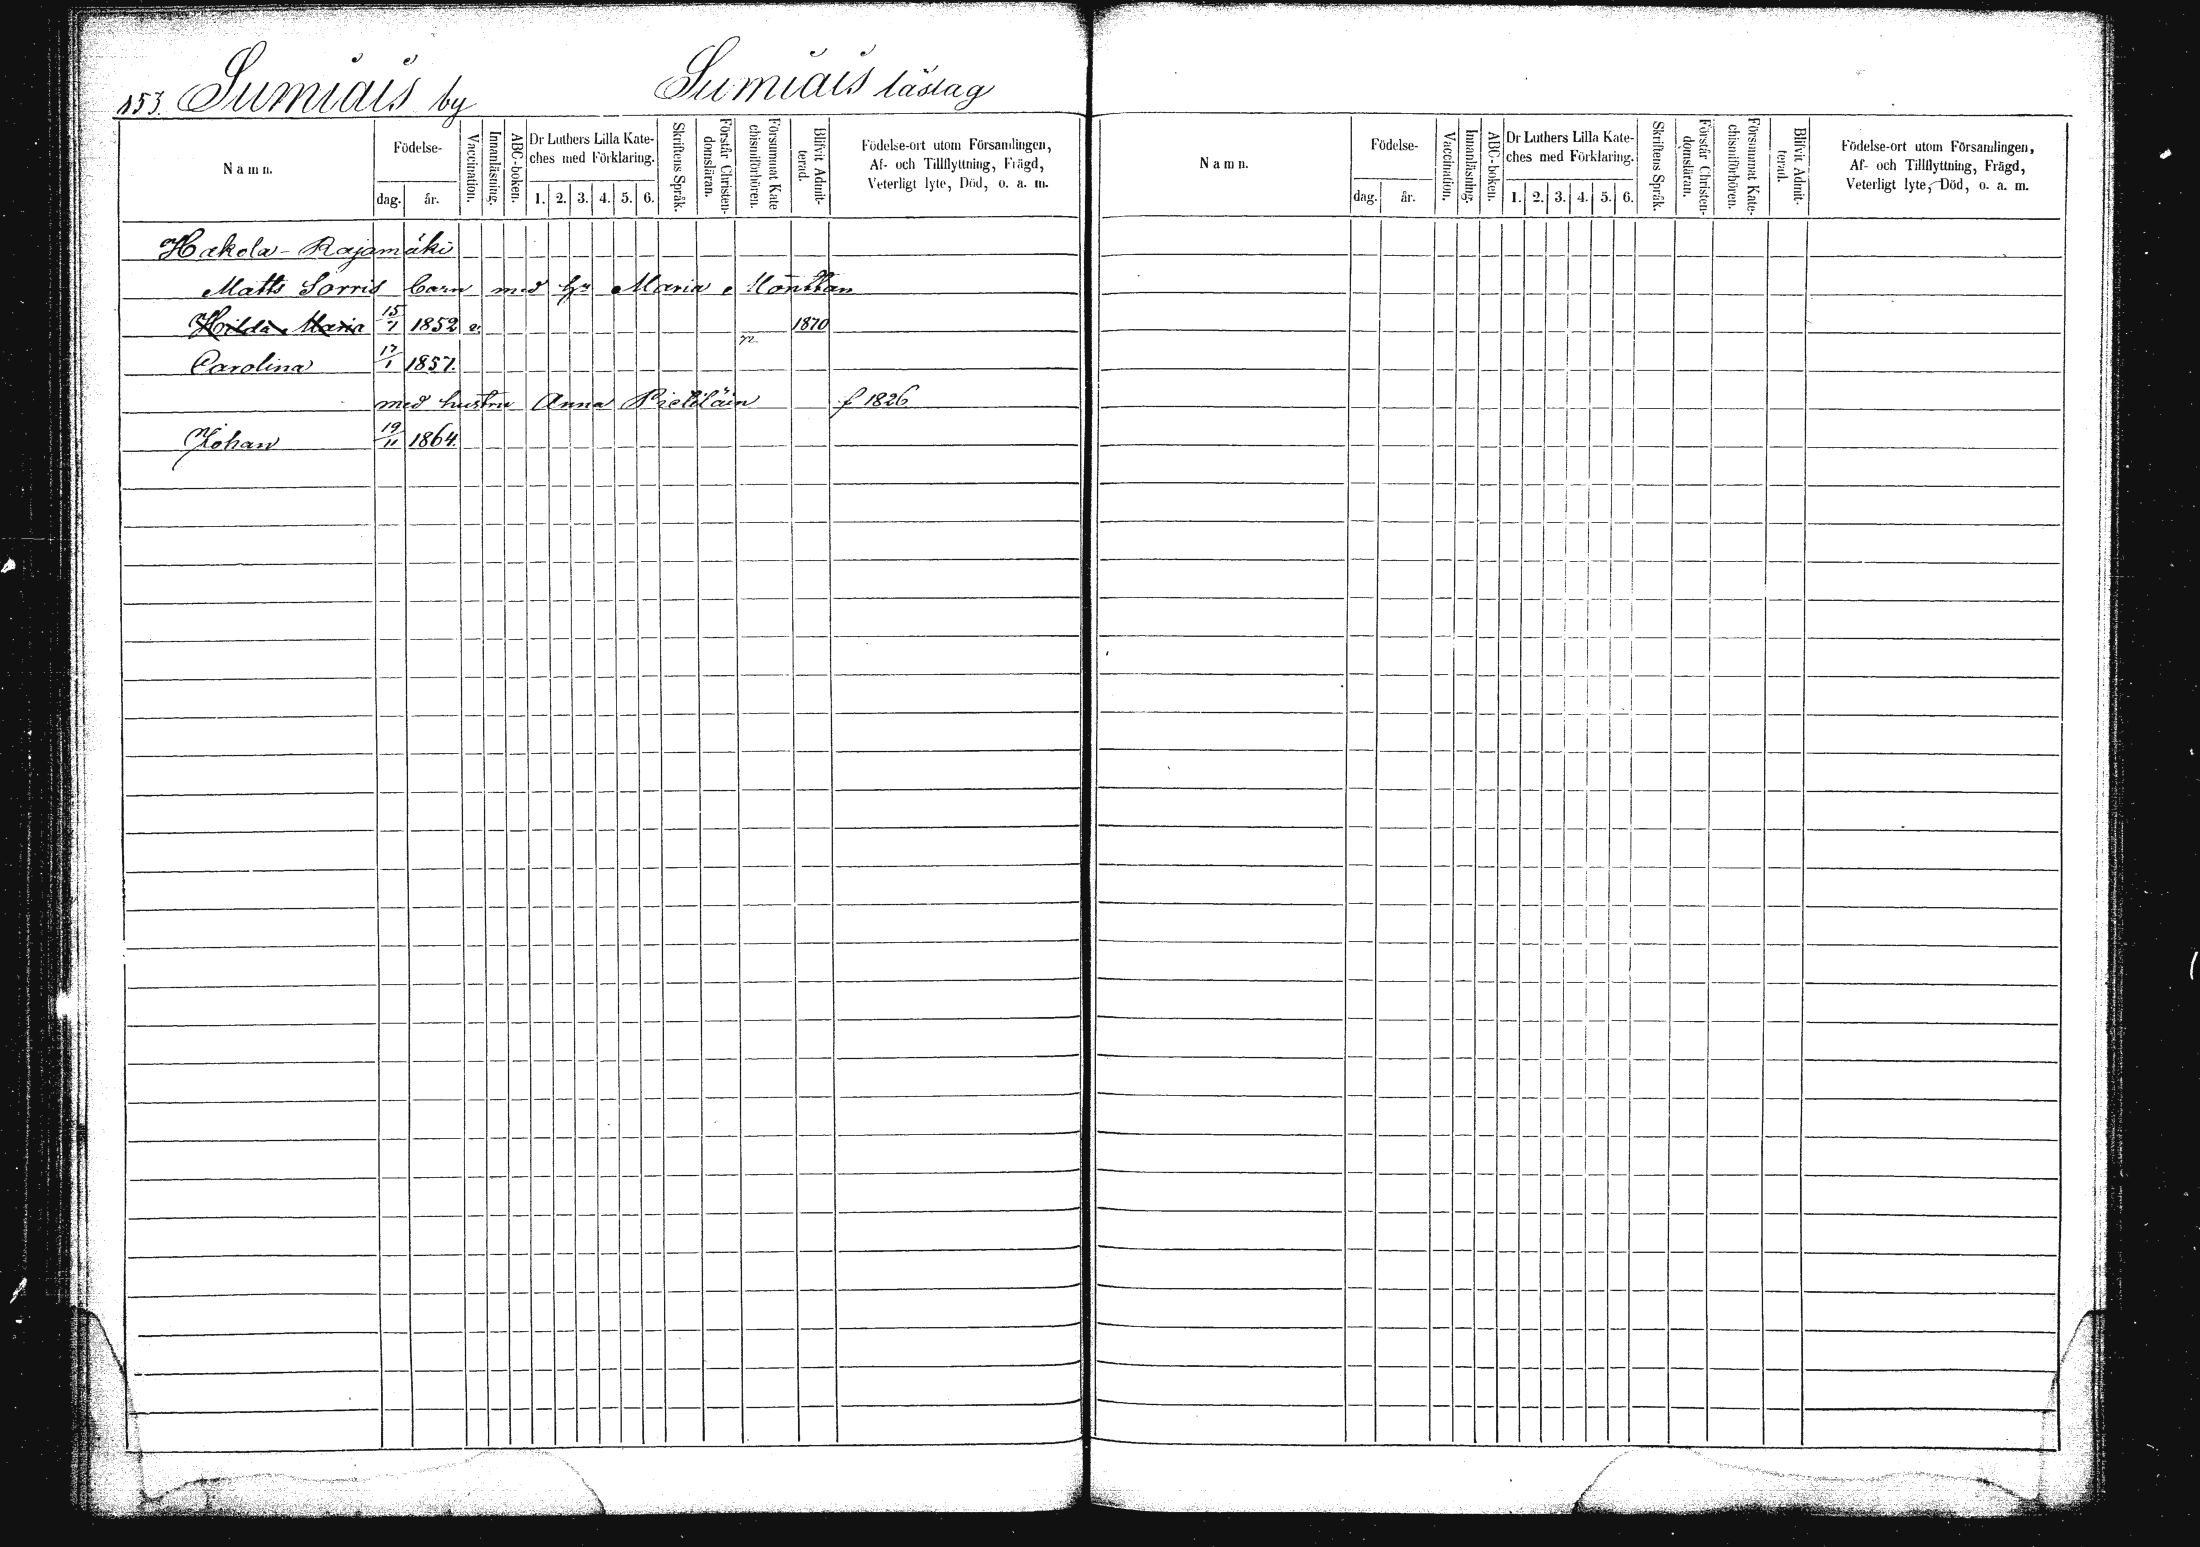 153. Sumiais by Sumiais läslag
Namn. Födelse- dag. år. Vaccination. Innanläsning. ABC-boken. Dr Luthers Lilla Kate-ches med Förklaring. 1. 2. 3. 4. 5. 6. Skriftens Språk. Förstår Christen-domsläran. Försummat Kate chismiförhören. Blifvit Admit-terad. Födelse-ort utom Församlingen, Af- och Tillflyttning, Frägd, Veterligt lyte, Död, o. a. m.
Hakola - Rajamäki
Matts Sorris barn med hu Maria
Hilda Maria 15/1 1852 v. 1870
n.
Carolina 17/1 1857.
med hustru Anna Pieliläin f 1826
Johan 19/11 1864.
Namn. Födelse- dag. år. Vaccination. Innanläsning. ABC-boken. Dr Luthers Lilla Kate-ches med Förklaring. 1. 2. 3. 4. 5. 6. Skriftens Språk. Förstår Christen-domsläran. Försummat Kate-chismiförhören. Blifvit Admit-terad. Födelse-ort utom Församlingen, Af- och Tillflyttning, Frägd, Veterligt lyte, Död, o. a. m.